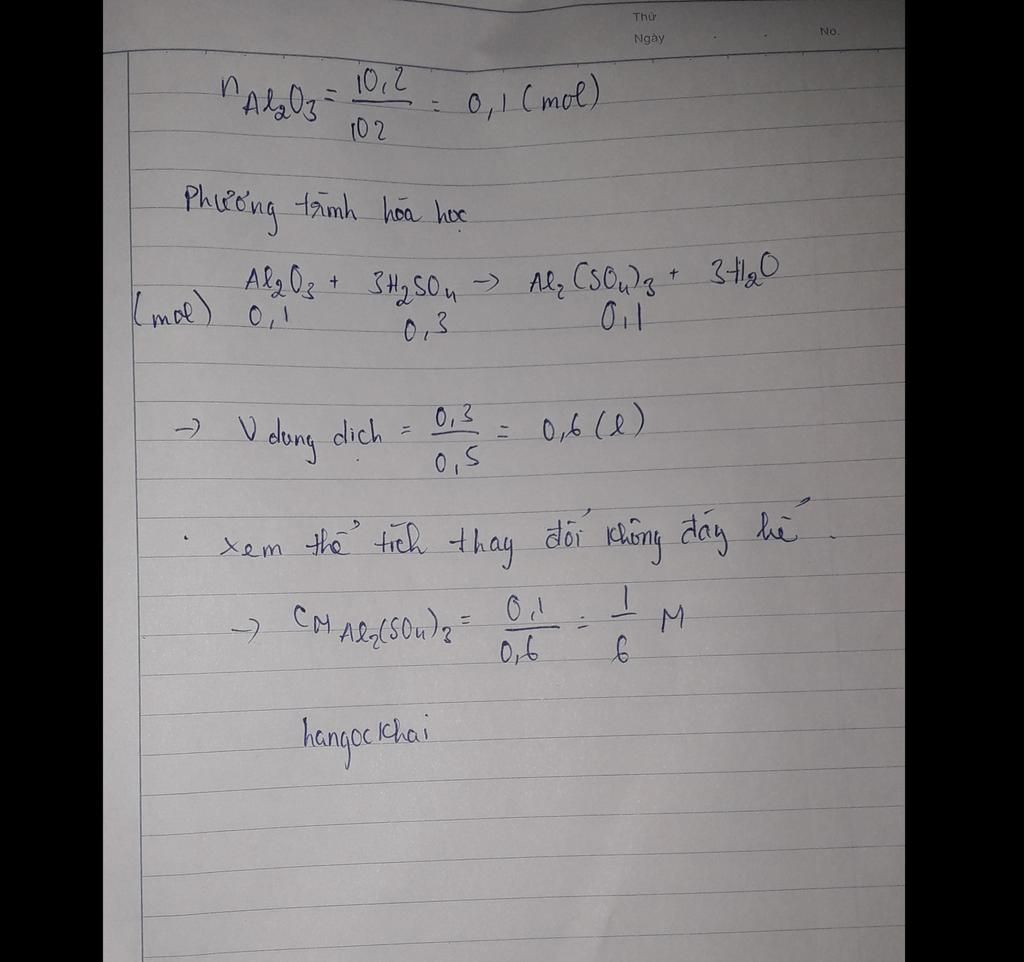 Thứ
Ngày . . No.
nAl₂O₃ = 10,2/102 = 0,1 (mol)
Phương trình hóa học
Al₂O₃ + 3H₂SO₄ → Al₂(SO₄)₃ + 3H₂O
(mol) 0,1 0,3 0,1
→ V dung dịch = 0,3/0,5 = 0,6 (l)
. xem thể tích thay đổi không đáy kể.
→ CM Al₂(SO₄)₃ = 0,1/0,6 = 1/6 M
hangockhai